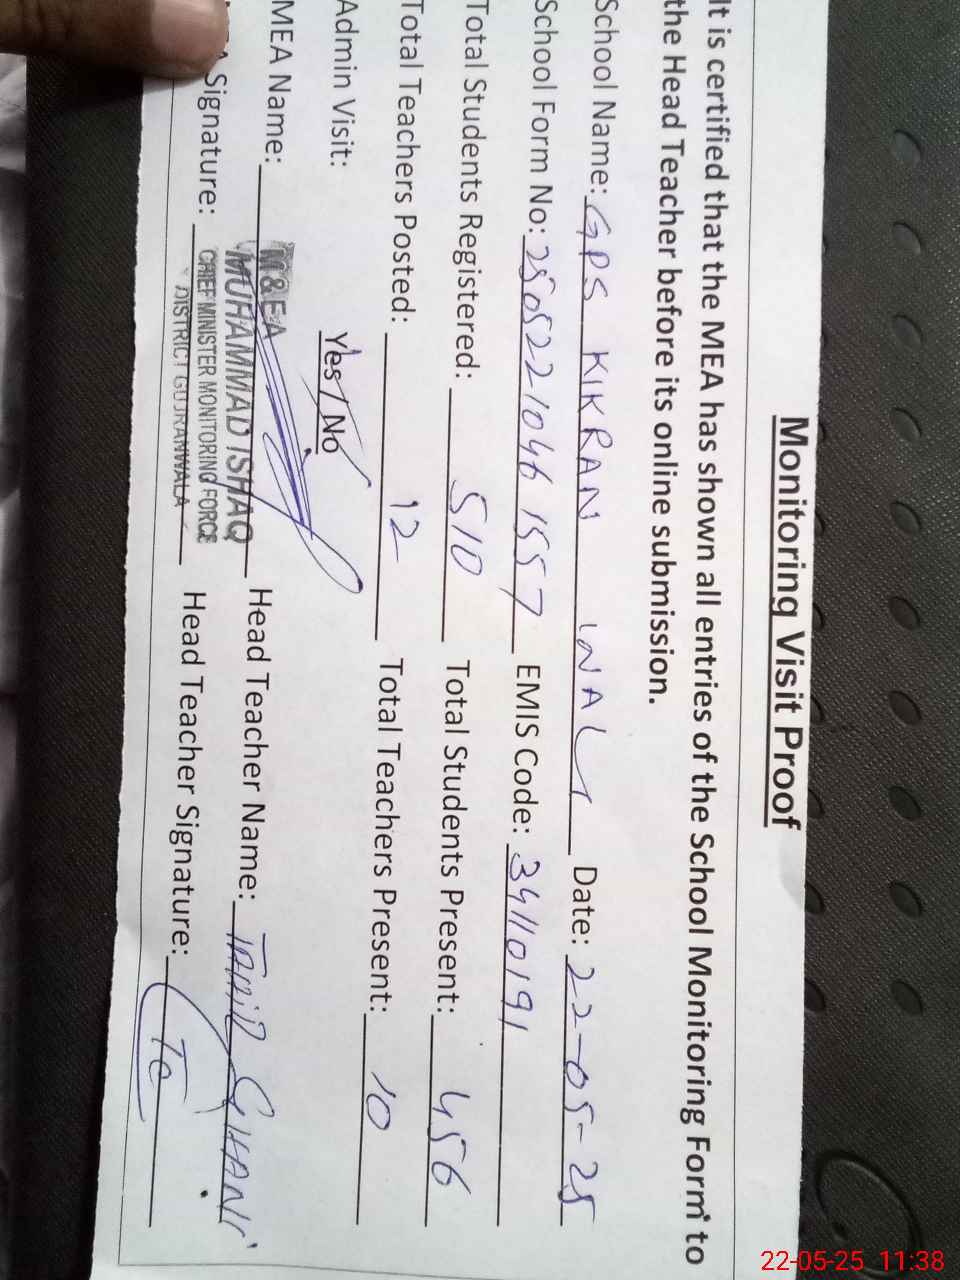 Monitoring Visit Proof
It is certified that the MEA has shown all entries of the School Monitoring Form to
the Head Teacher before its online submission.
School Name: GPS KIKRAN WALI Date: 22-05-25
School Form No: 2505221046157 EMIS Code: 34110191
Total Students Registered: 510 Total Students Present: 456
Total Teachers Posted: 12 Total Teachers Present: 10
Admin Visit: Yes / No
MEA Name: M&EA MUHAMMAD ISHAQ Head Teacher Name: GHANI
Signature: CHIEF MINISTER MONITORING FORCE Head Teacher Signature:
DISTRICT GUJRANWALA
22-05-25 11:38